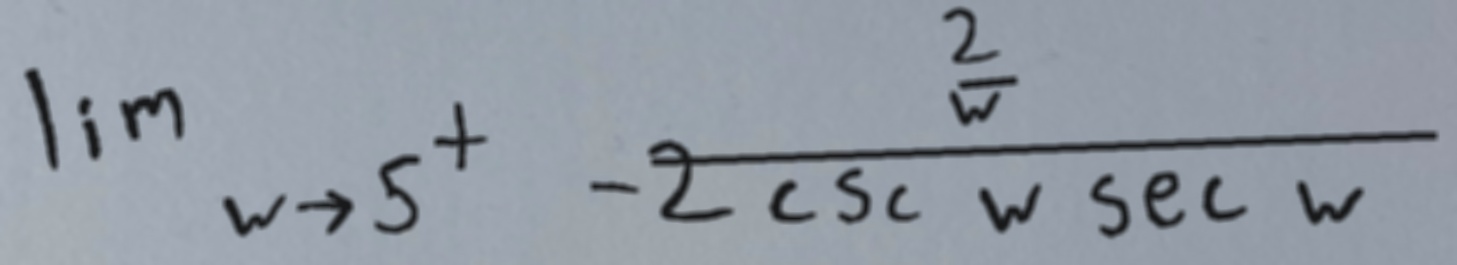 \lim_{w \to 5^+} \frac{\frac{2}{w}}{-2 \csc w \sec w}